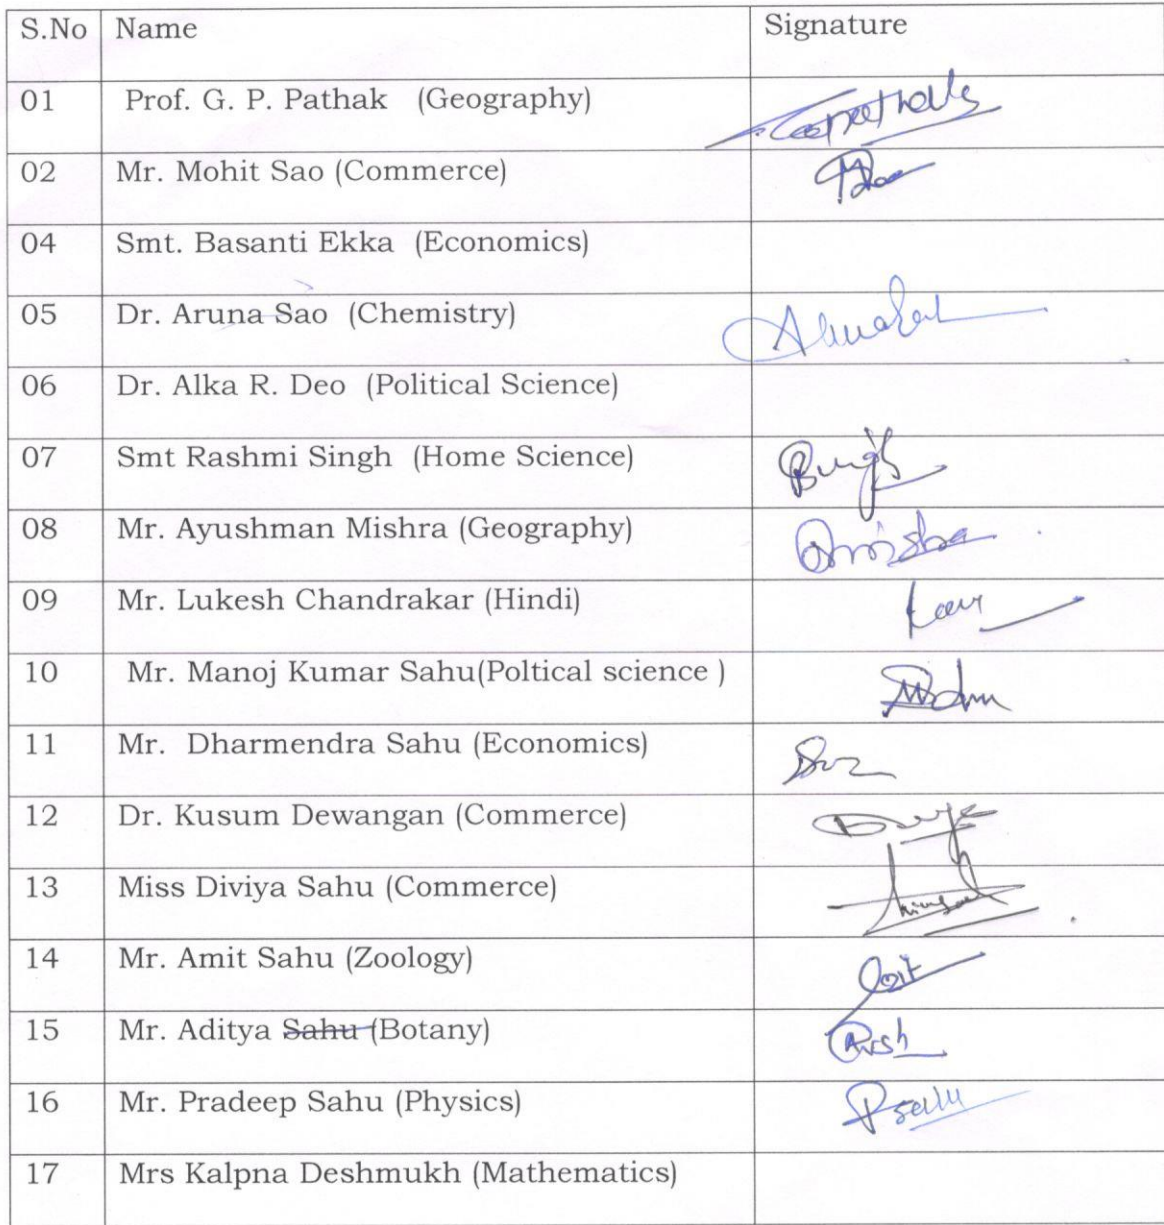 S.No Name Signature
01 Prof. G. P. Pathak (Geography)
02 Mr. Mohit Sao (Commerce)
04 Smt. Basanti Ekka (Economics)
05 Dr. Aruna Sao (Chemistry)
06 Dr. Alka R. Deo (Political Science)
07 Smt Rashmi Singh (Home Science)
08 Mr. Ayushman Mishra (Geography)
09 Mr. Lukesh Chandrakar (Hindi)
10 Mr. Manoj Kumar Sahu(Poltical science )
11 Mr. Dharmendra Sahu (Economics)
12 Dr. Kusum Dewangan (Commerce)
13 Miss Diviya Sahu (Commerce)
14 Mr. Amit Sahu (Zoology)
15 Mr. Aditya Sahu (Botany)
16 Mr. Pradeep Sahu (Physics)
17 Mrs Kalpna Deshmukh (Mathematics)